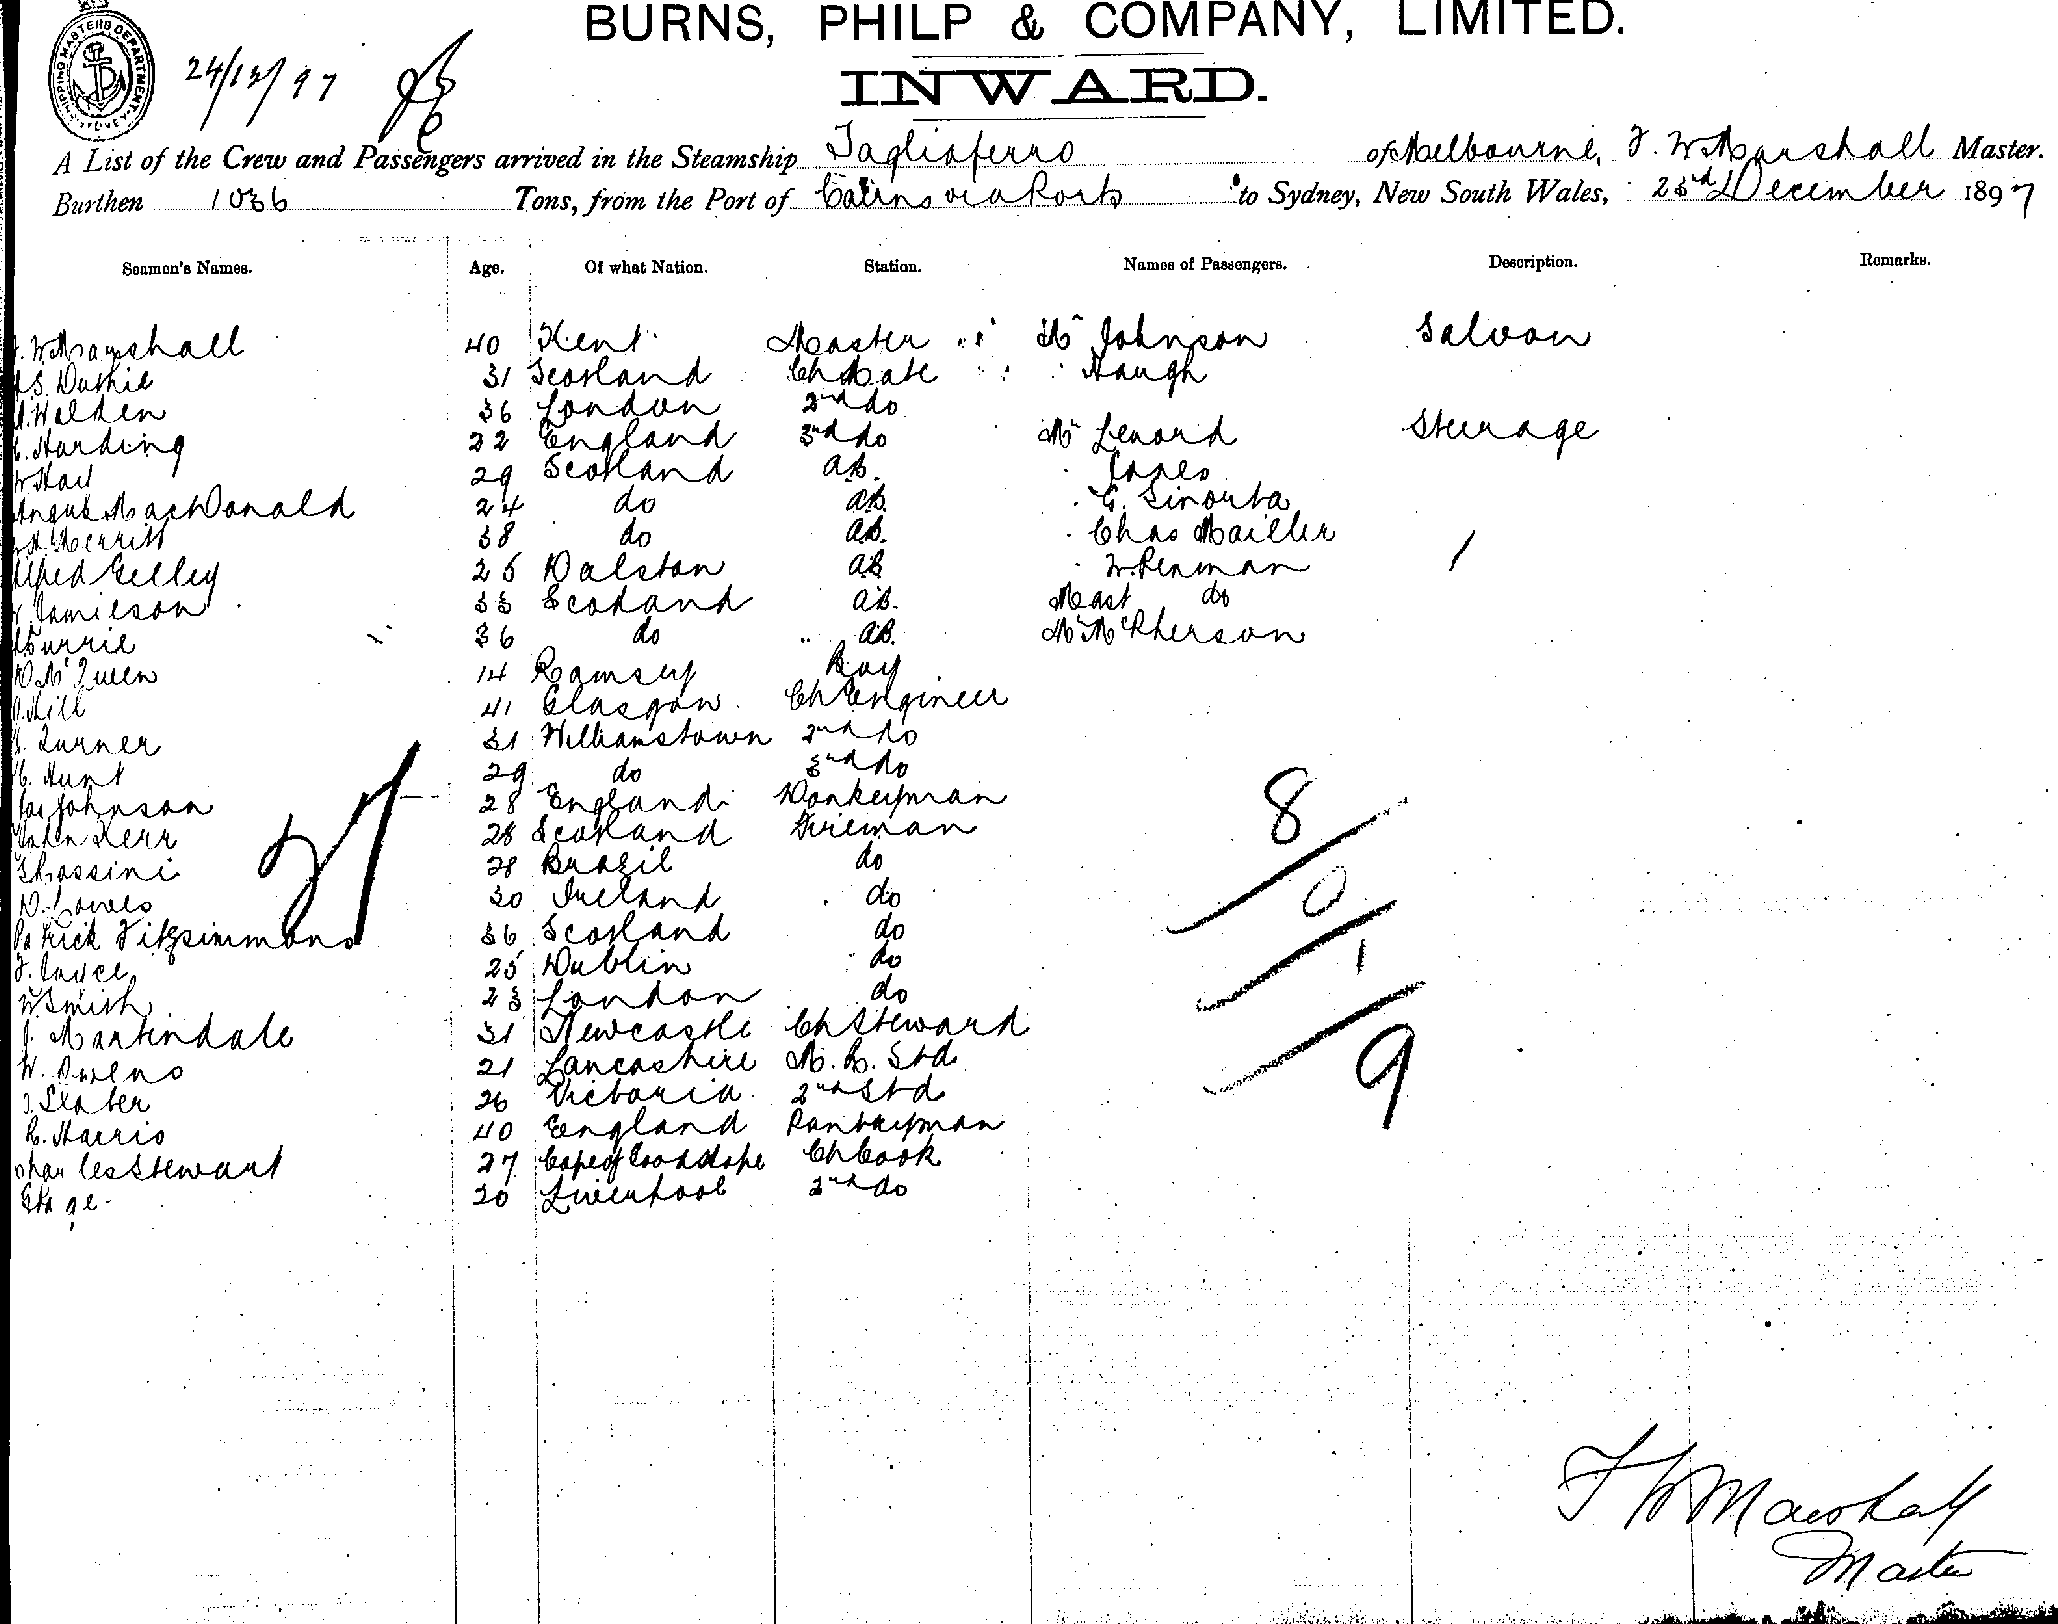 BURNS, PHILP & COMPANY, LIMITED.
INWARD.
SHIPPING MASTERS DEPARTMENT
24/12/97
A List of the Crew and Passengers arrived in the Steamship Tagliaferro of Melbourne, F. W. Marshall Master.
Burthen 1036 Tons, from the Port of Cairns via Ports to Sydney, New South Wales, 23rd December 1897
Seamen's Names. Age. Of what Nation. Station. Names of Passengers. Description. Remarks.
W Marshall 40 Kent Master Mr Johnson Saloon
S. Duthie 31 Scotland Ch Mate " Haugh
Walden 36 London 2nd do
Harding 22 England 3rd do Mr Lenord Steerage
W Hay 29 Scotland A.B. " Jones
Angus MacDonald 24 do A.B. " G.
Merritt 38 do A.B. " Chas Mailler
Alfred Gelley 25 Dalston A.B. " W. Penman /
Jamieson 33 Scotland A.B. Mast do
Currie 36 do A.B. Mr McPherson
D McQueen 14 Ramsey Boy
Hill 41 Glasgow Ch Engineer
Turner 31 Williamstown 2nd do
Hunt 29 do 3rd do
Jas Johnson 28 England Donkeyman
Kerr 28 Scotland Fireman
Rossini 28 Brazil do
D. 30 Ireland do
Patrick Fitzsimmons 36 Scotland do
F. Joyce 25 Dublin do
W. Smith 23 London do
J. Martindale 31 Newcastle Ch Steward
W. Owens 21 Lancashire M. R. Std
J. Slater 26 Victoria 2nd Std
R. Harris 40 England Pantryman
Charles Stewart 27 Cape of Good Hope Ch Cook
Gage 20 Liverpool 2nd do
27
8
0
1
9
F W Marshall
Master